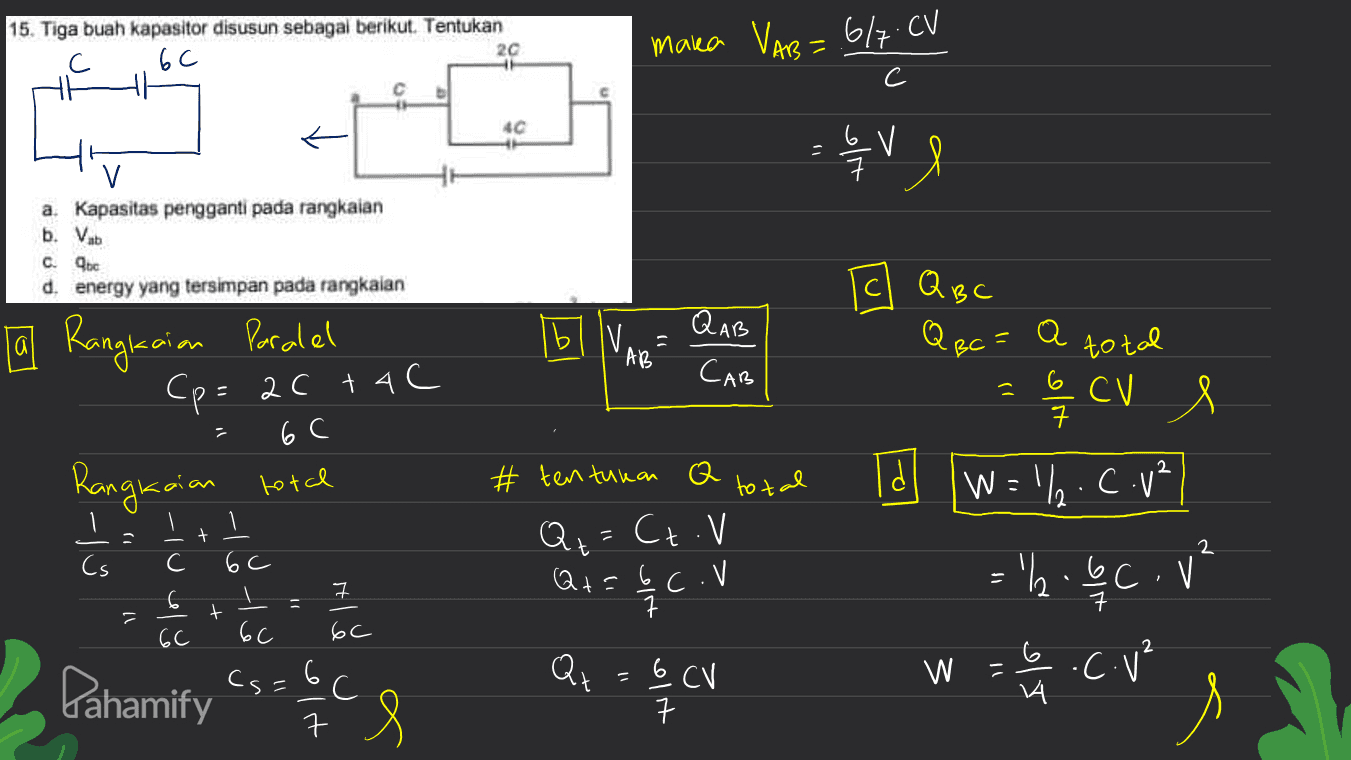 15. Tiga buah kapasitor disusun sebagai berikut. Tentukan
C 6C
V
2C
a C b c
4C
a. Kapasitas pengganti pada rangkaian
b. Vab
c. qbc
d. energy yang tersimpan pada rangkaian
a Rangkaian Paralel
Cp = 2C + 4C
= 6C
Rangkaian total
1/Cs = 1/C + 1/6C
= 6/6C + 1/6C = 7/6C
Cs = 6/7 C
b VAB = QAB/CAB
# tentukan Q total
Qt = Ct . V
Qt = 6/7 C . V
Qt = 6/7 CV
maka VAB = 6/7 . CV / C
= 6/7 V
c QBC
QBC = Q total
= 6/7 CV
d W = 1/2 . C . V²
= 1/2 . 6/7 C . V²
W = 6/14 . C . V²
Pahamify